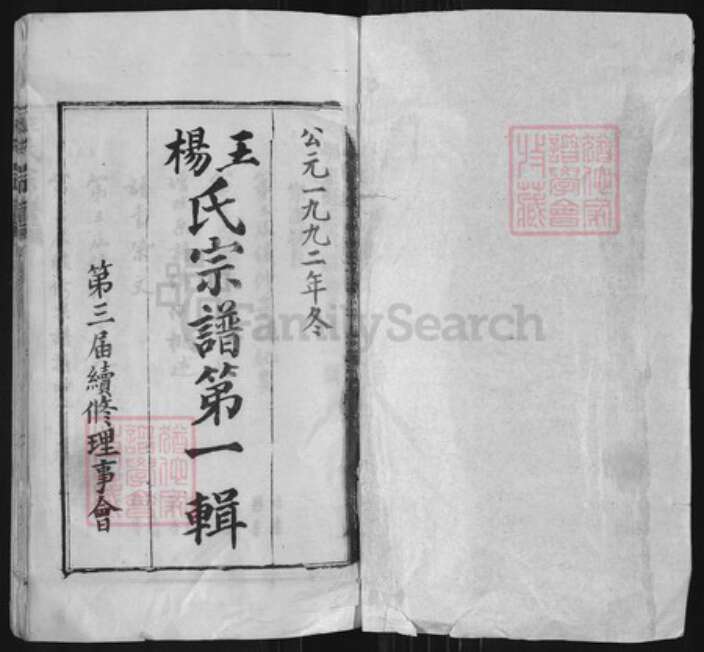 公元一九九二年冬
王楊氏宗譜第一輯
第三届續修理事會
FamilySearch